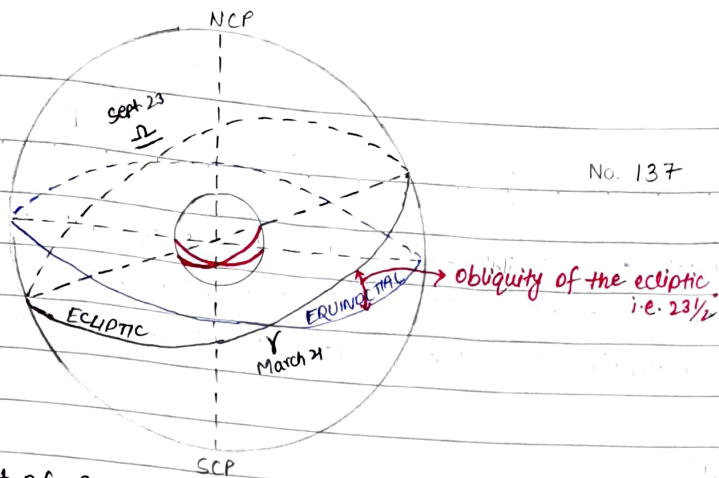 NCP
Sept 23
♎
No. 137
Obliquity of the ecliptic
i.e. 23½°
EQUINOCTIAL
ECLIPTIC
♈
March 21
SCP